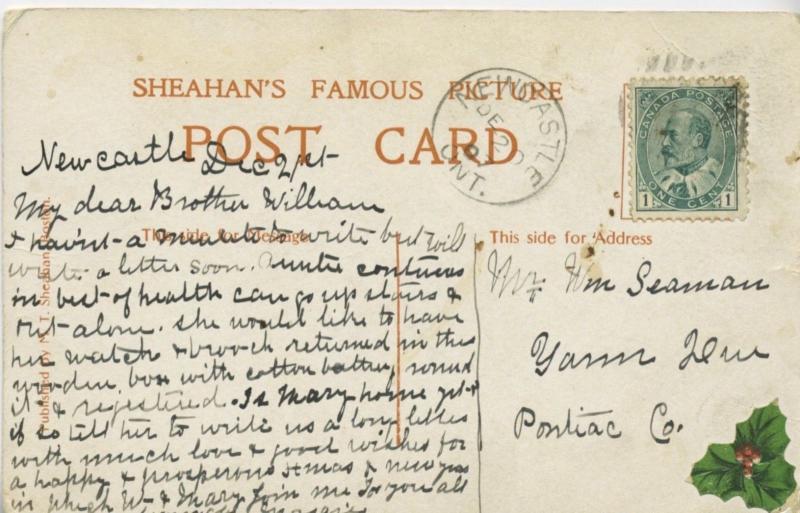 SHEAHAN'S FAMOUS PICTURE
POST CARD
NEWCASTLE
DE 20
ONT.
CANADA POSTAGE
1 ONE CENT 1
Newcastle Dec 21st
My dear Brother William
This side for Message
I havint a minute to write but will
write a letter soon. Auntie continues
in best of health can go up stairs &
out alone. She would like to have
her watch & brooch returned in this
wooden box with cotton batting round
it & registered. Is Mary home yet &
if so tell her to write us a long letter
with much love & good wishes for
a happy & prosperous Xmas & new year
in which W & Mary join me for you all
This side for Address
Mr Wm Seaman
Yarm
Pontiac Co.
Published by M. T. Sheahan, Boston.